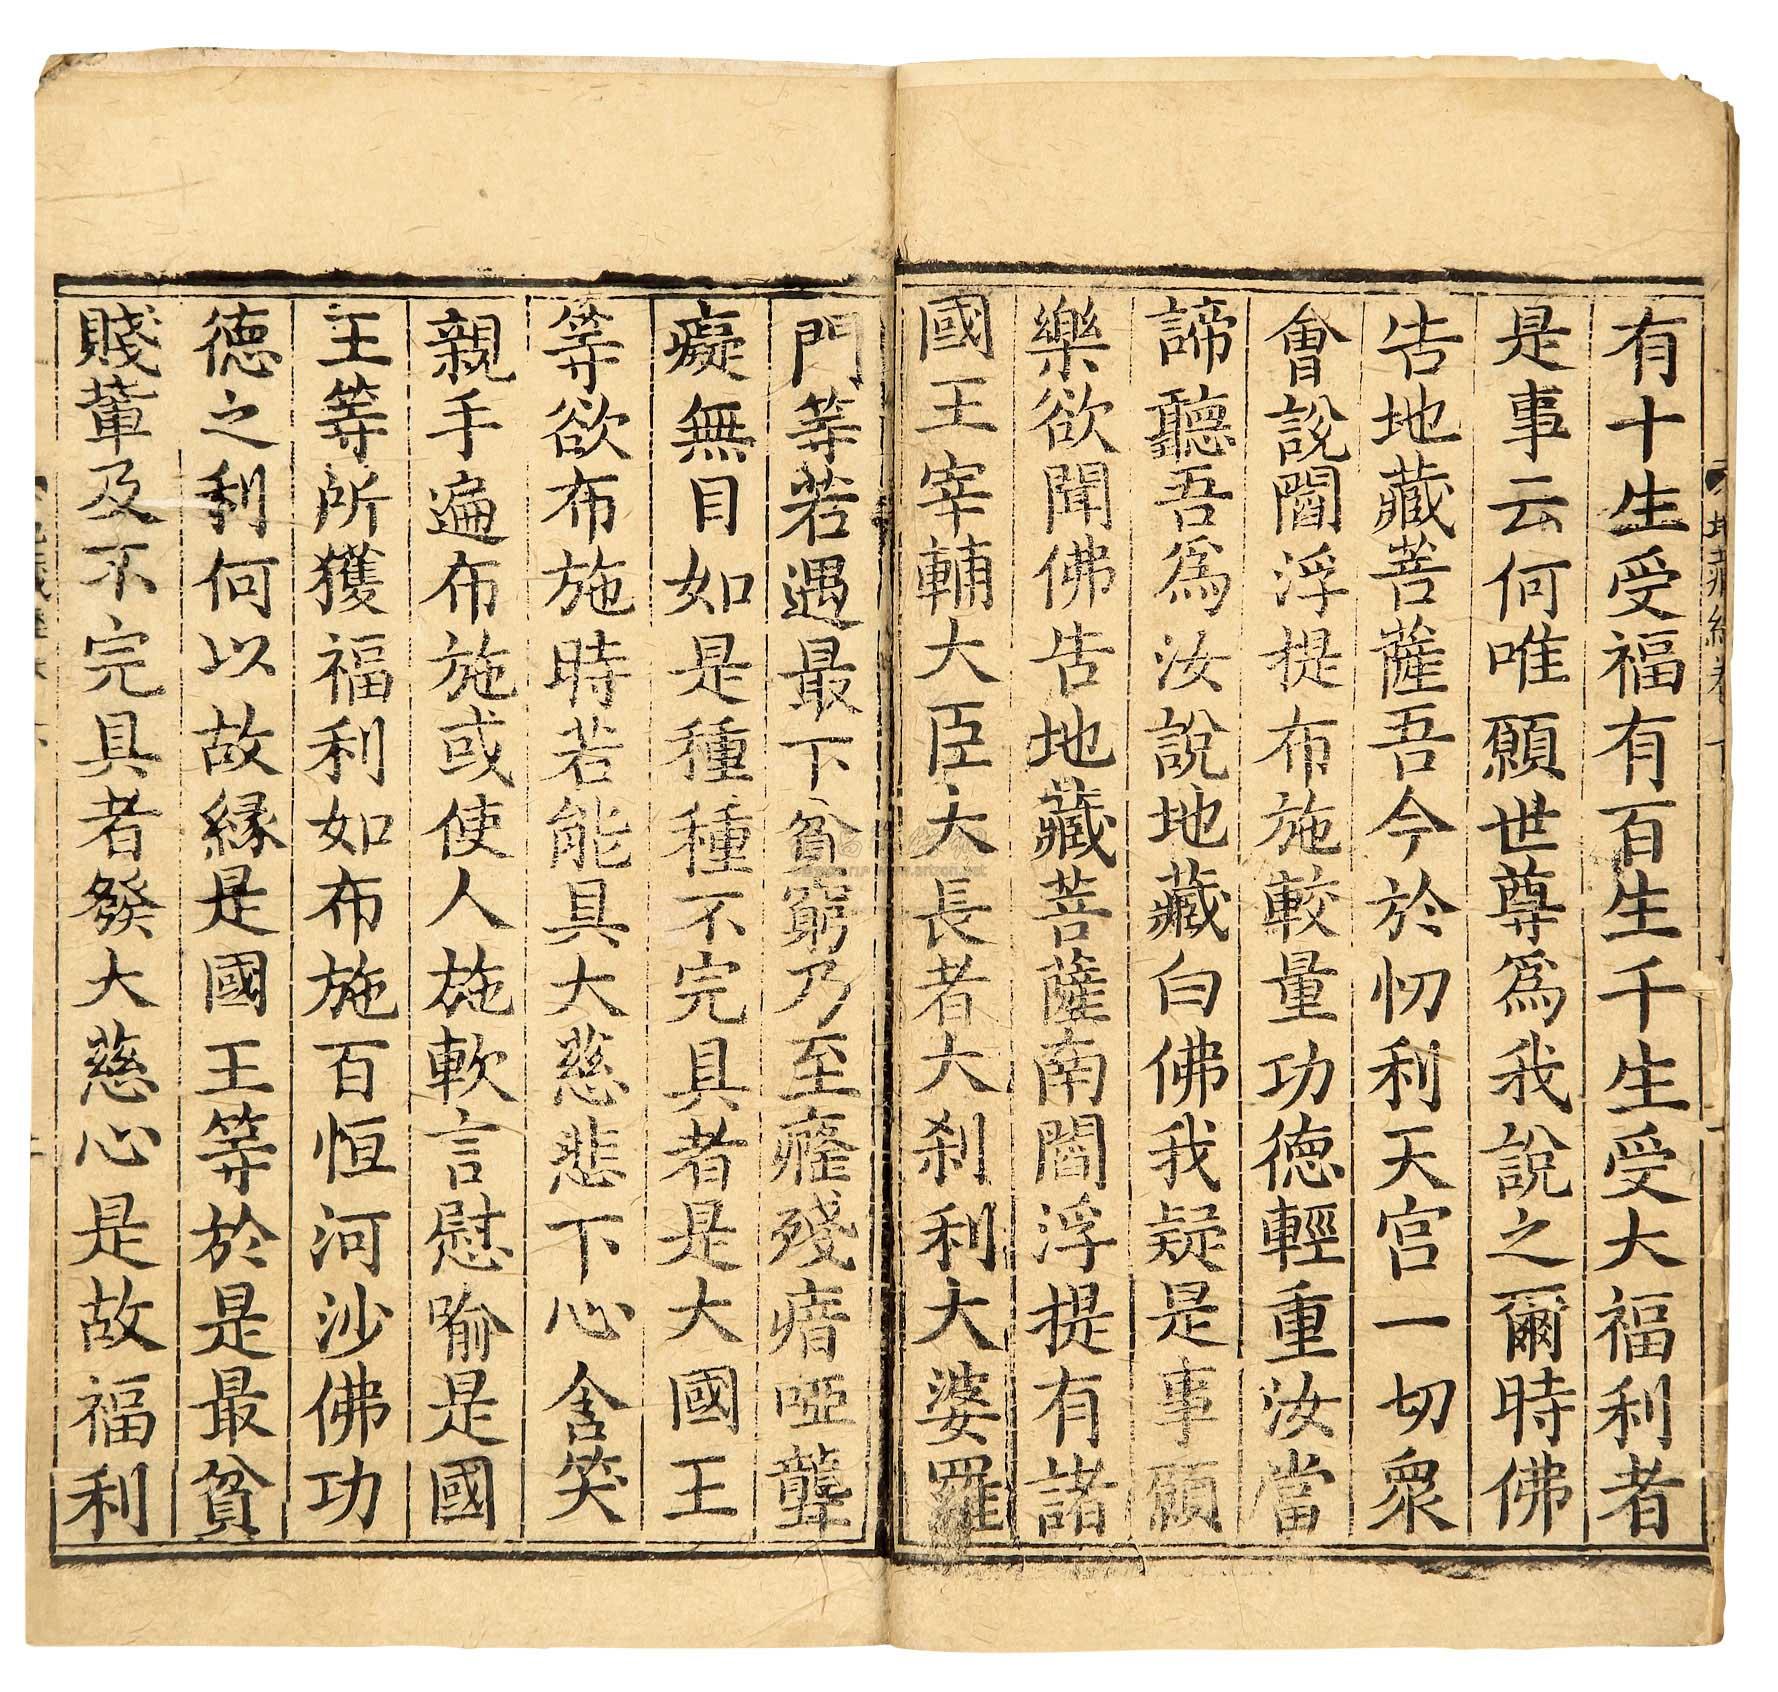 有十生受福有百生千生受大福利者
是事云何唯願世尊爲我說之爾時佛
告地藏菩薩吾今於忉利天宫一切衆
會說閻浮提布施較量功德輕重汝當
諦聽吾爲汝說地藏白佛我疑是事願
樂欲聞佛告地藏菩薩南閻浮提有諸
國王宰輔大臣大長者大刹利大婆羅
門等若遇最下貧窮乃至癃殘瘖啞聾
癡無目如是種種不完具者是大國王
等欲布施時若能具大慈悲下心含笑
親手遍布施或使人施軟言慰喻是國
王等所獲福利如布施百恒河沙佛功
德之利何以故緣是國王等於是最貧
賤輩及不完具者發大慈心是故福利
地藏經卷下
www.artron.net